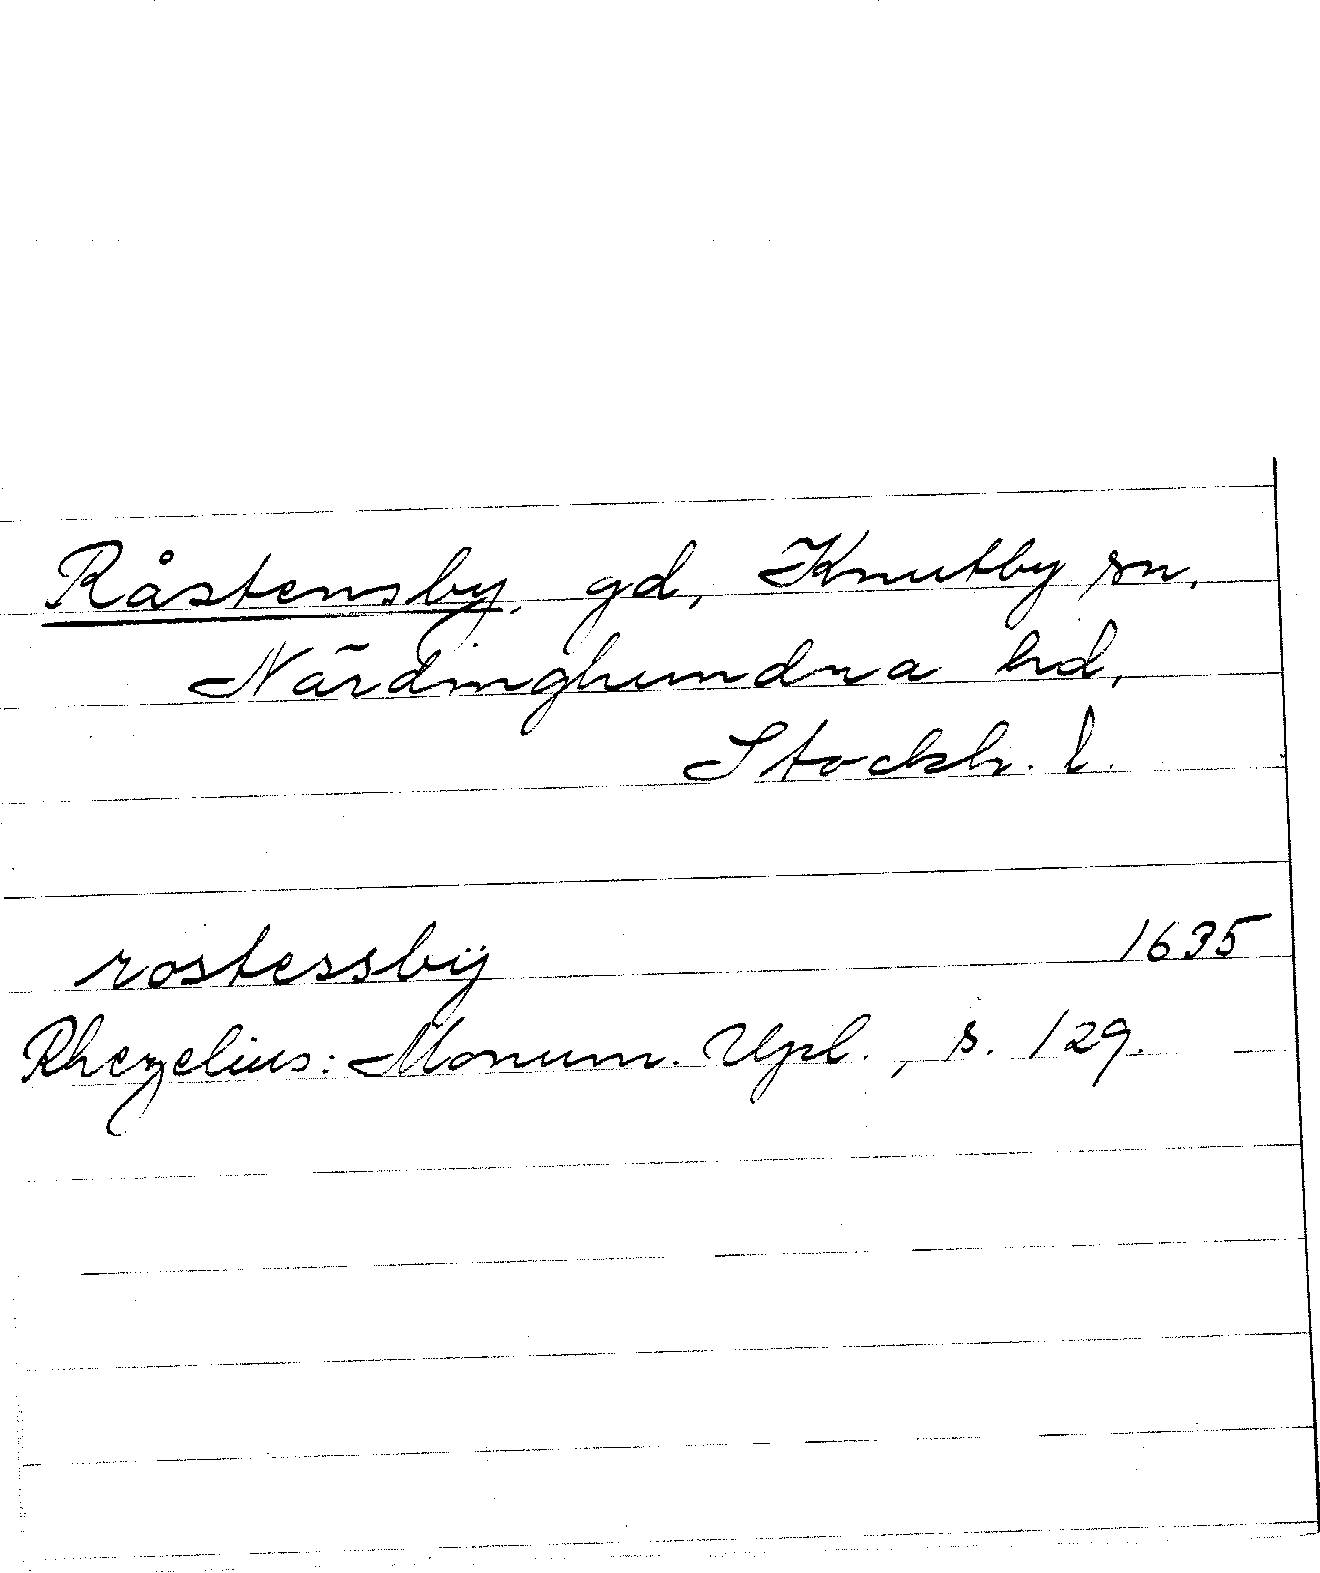 Råstensby, gd, Knutby sn,
Närdinghundra hd,
Stockh. l.
rostessbÿ 1635
Rhezelius: Monum. Upl., s. 129.